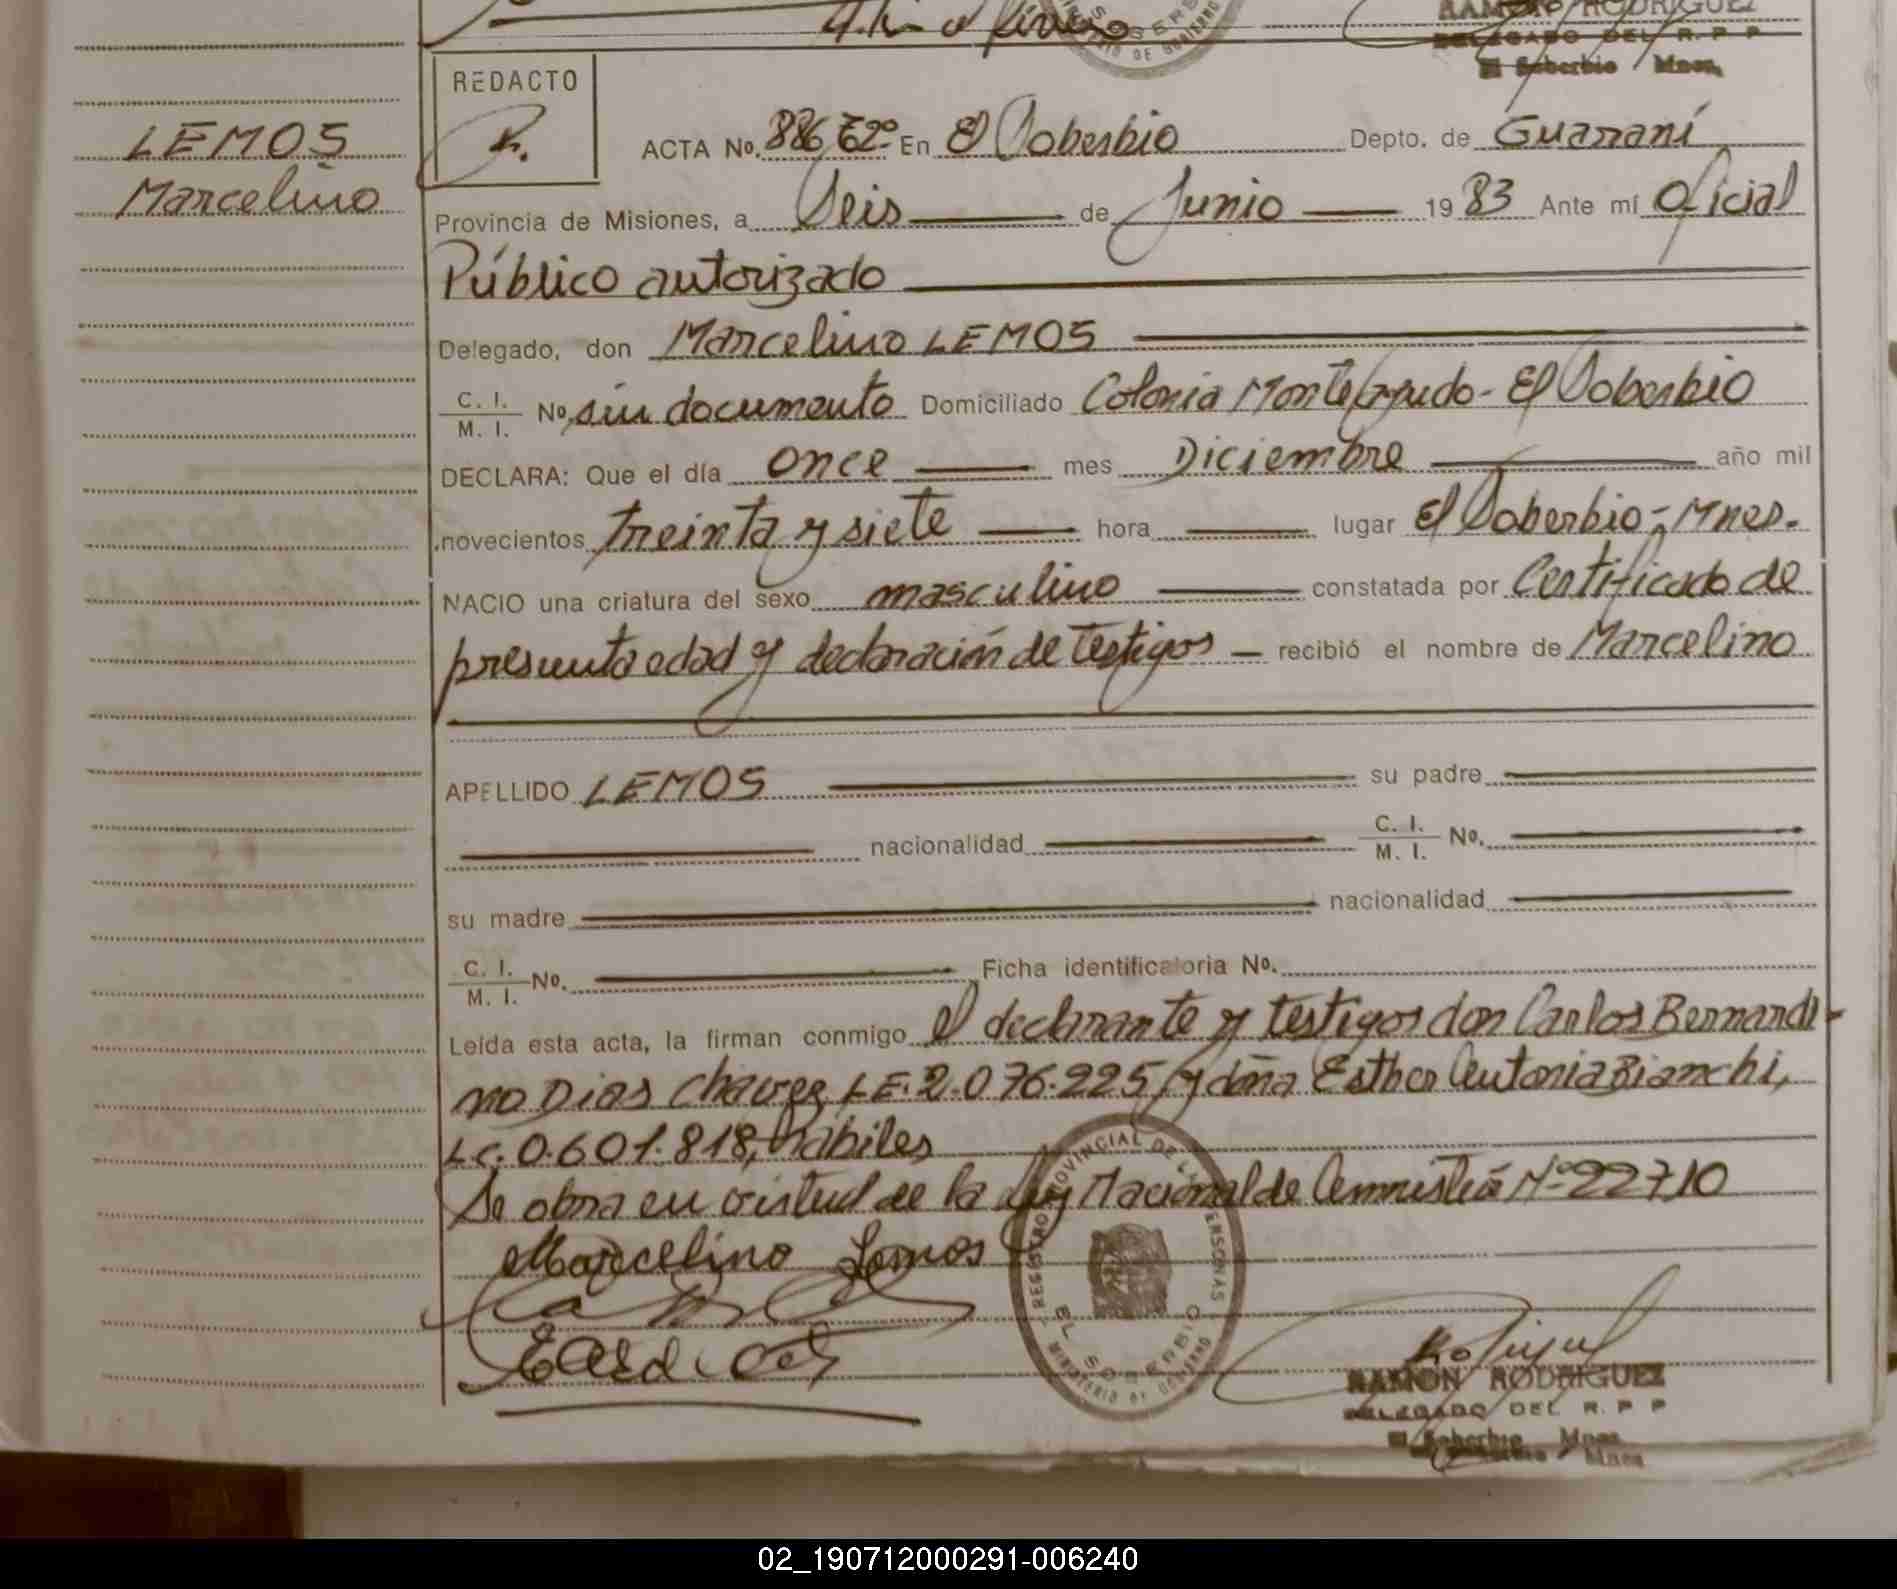 RAMON RODRIGUEZ
DELEGADO DEL R. P P
El Soberbio Mnes.
REDACTO
R.
LEMOS
Marcelino
ACTA No. 886 Tº 2º En El Soberbio Depto. de Guaraní
Provincia de Misiones, a Seis de Junio 1983 Ante mí Oficial
Público autorizado
Delegado, don Marcelino LEMOS
C. I.
M. I. No. sin documento Domiciliado Colonia Monteagudo - El Soberbio
DECLARA: Que el día once mes Diciembre año mil
novecientos treinta y siete hora lugar El Soberbio - Mnes.
NACIO una criatura del sexo masculino constatada por Certificado de
presunta edad y declaración de testigos recibió el nombre de Marcelino
APELLIDO LEMOS su padre
nacionalidad C. I.
M. I. No.
su madre nacionalidad
C. I.
M. I. No. Ficha identificatoria No.
Leída esta acta, la firman conmigo el declarante y testigos don Carlos Bernardi-
no Dias Chavez LE. 2.076.225, y dña Esther Antonia Bianchi,
LC. 0.601.818, hábiles
Se obra en virtud de la Ley Nacional de Amnistía Nº 22710
Marcelino Lemos
REGISTRO PROVINCIAL DE LAS PERSONAS
EL SOBERBIO
MINISTERIO DE GOBIERNO
RAMON RODRIGUEZ
DELEGADO DEL R. P P
El Soberbio Mnes.
02_190712000291-006240